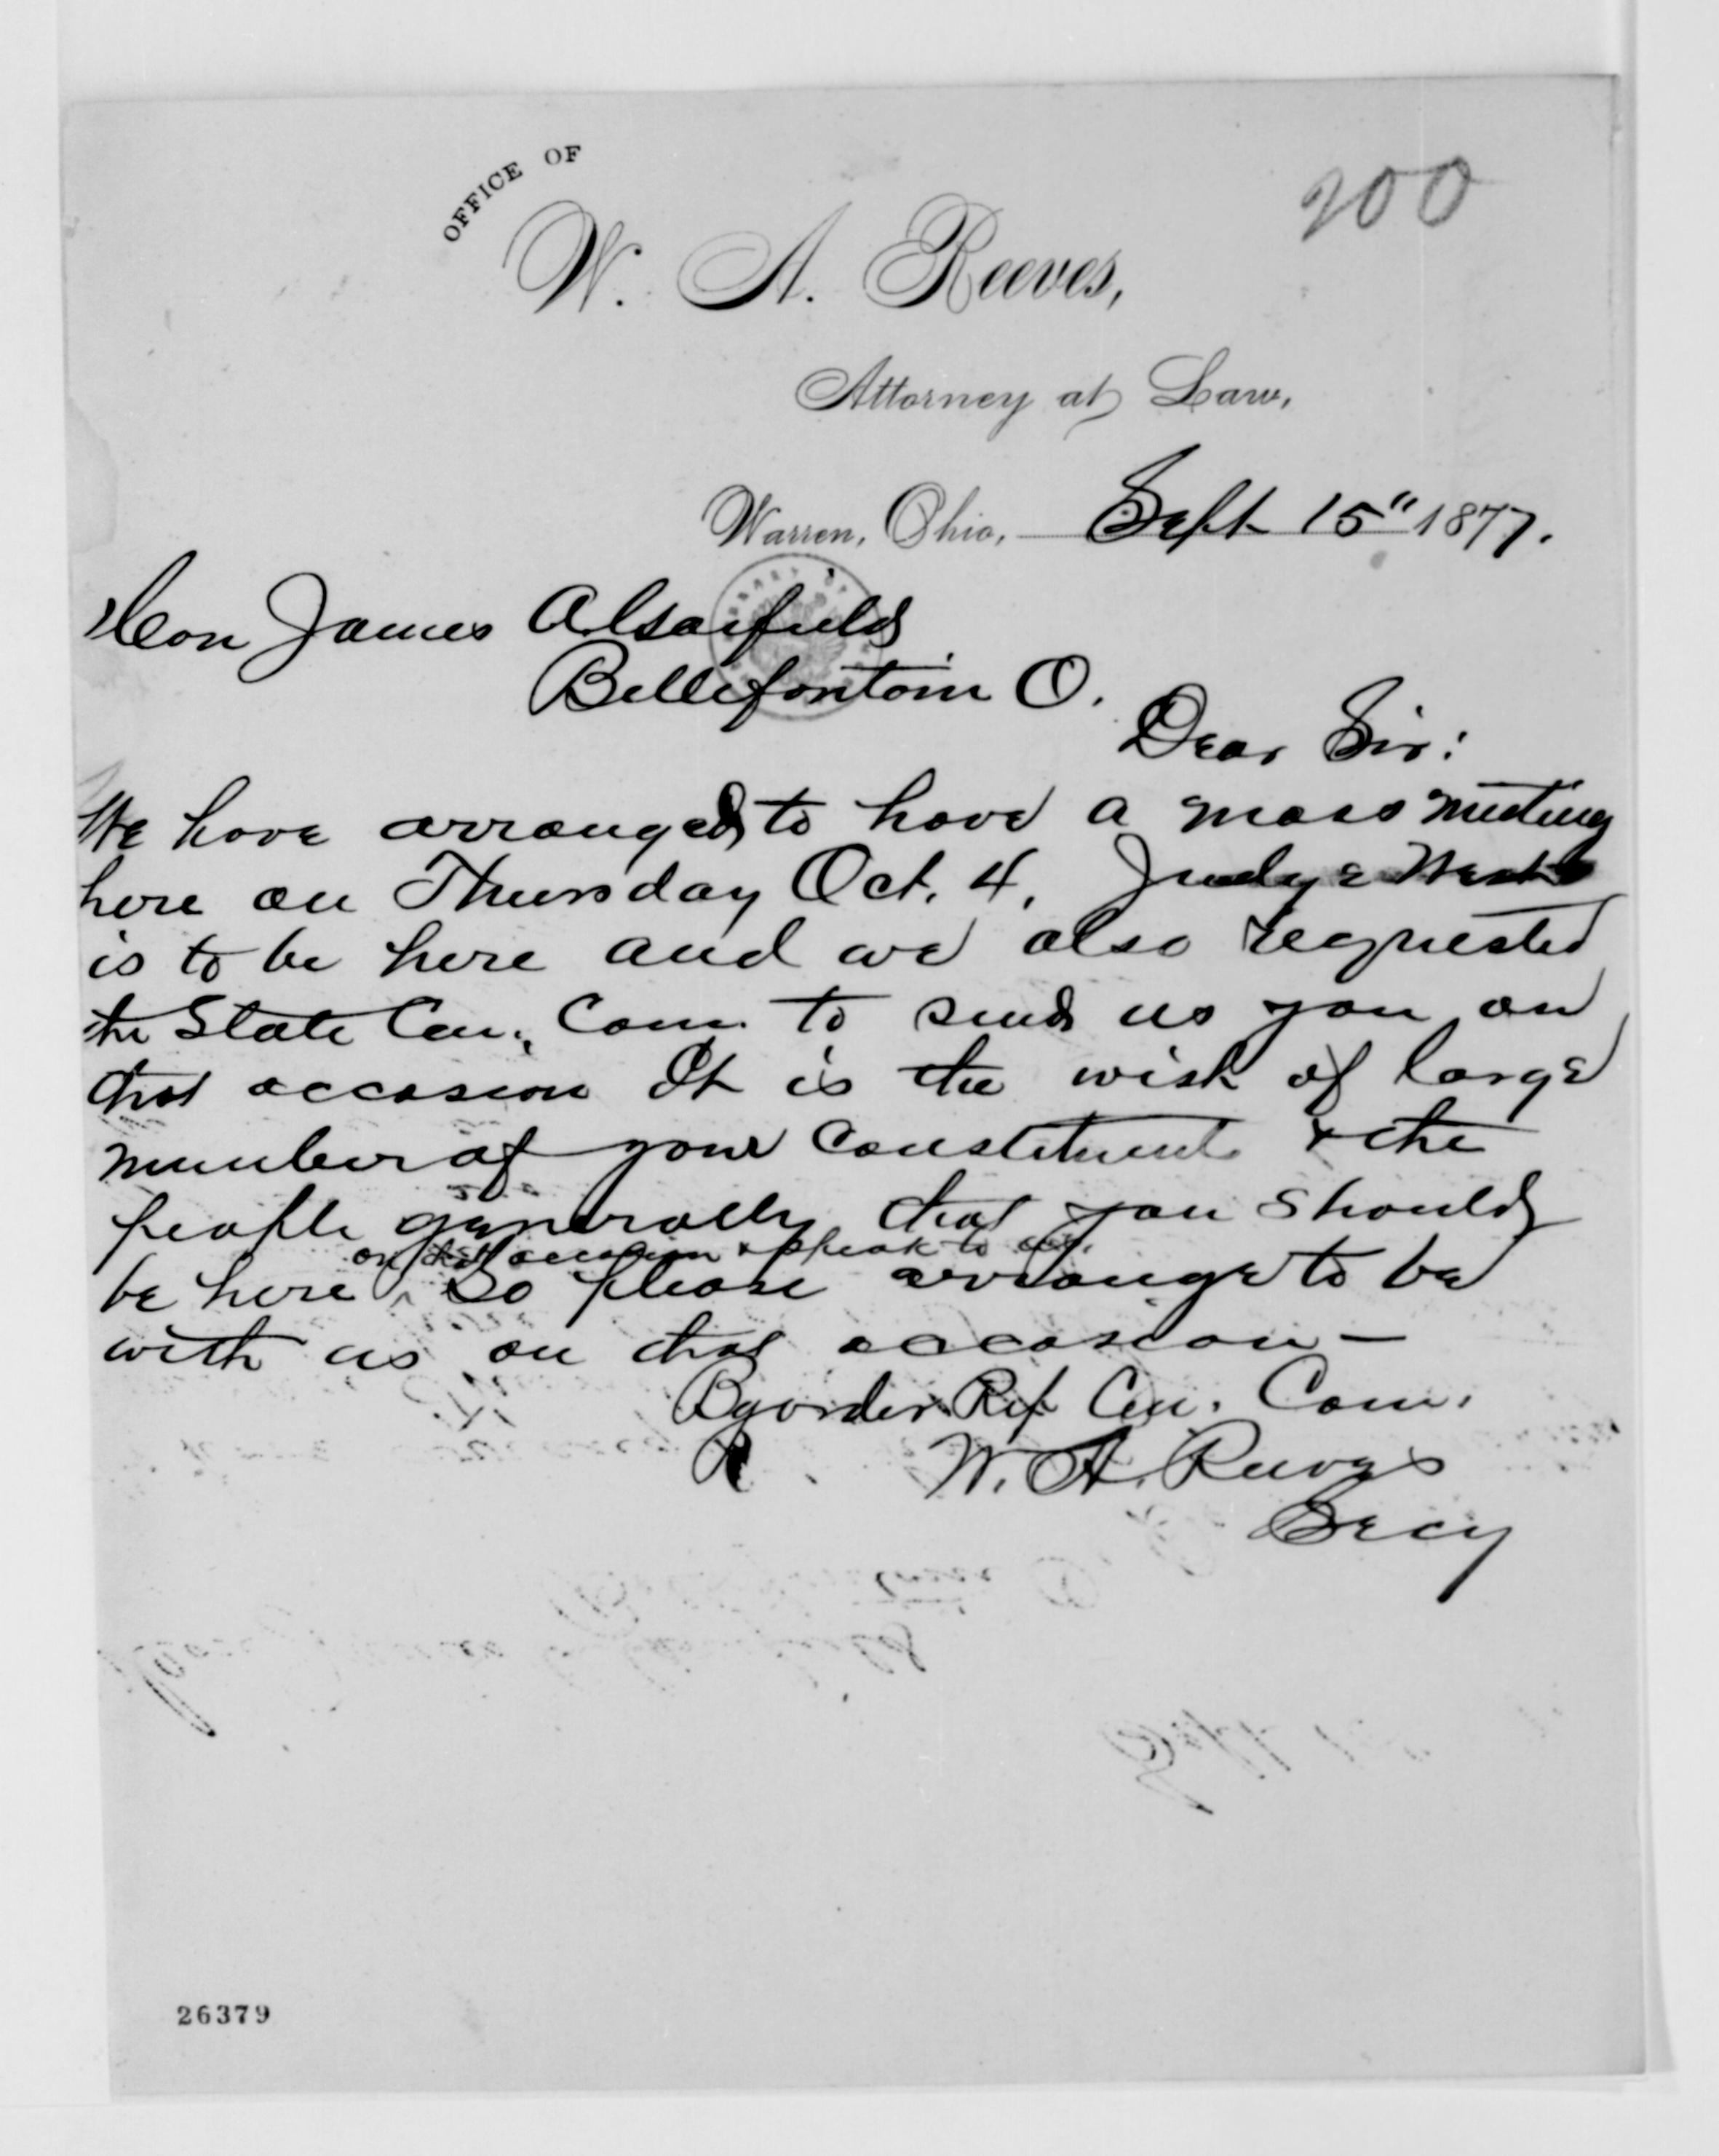 200
OFFICE OF
W. A. Reeves,
Attorney at Law,
Warren, Ohio, Sept 15" 1877.
Hon James A Garfield
Bellefontain O.
Dear Sir:
We have arranged to have a mass meeting
here on Thursday Oct. 4. Judge West
is to be here and we also requested
the State Cen. Com. to send us you on
that occasion It is the wish of large
number of your constituents & the
people generally that you should
on that occasion & speak to us.
be here ^ So please arrange to be
with us on that occasion —
By order Rep Cen. Com.
W. A. Reeves
Secy
26379